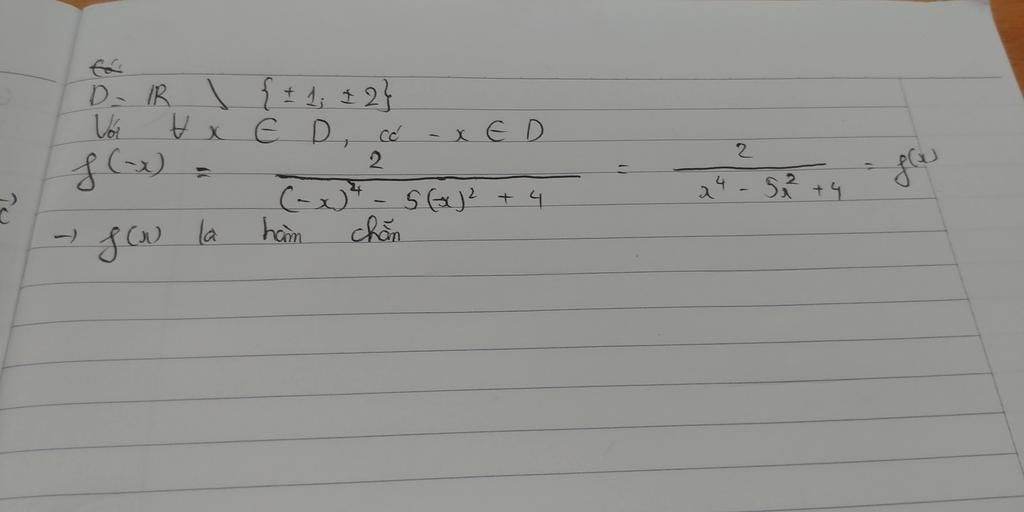 D = ℝ \ {±1; ±2}
Với ∀ x ∈ D, có -x ∈ D
f(-x) = 2 / ((-x)^4 - 5(-x)^2 + 4) = 2 / (x^4 - 5x^2 + 4) = f(x)
→ f(x) là hàm chẵn